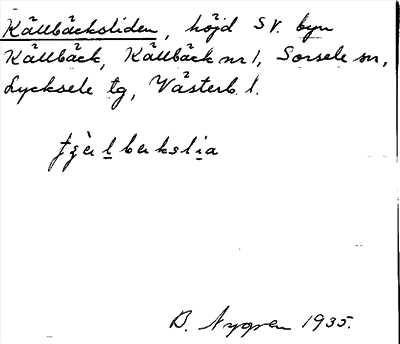 Källbäcksliden, höjd SV. byn
Källbäck, Källbäck nr 1, Sorsele sn,
Lycksele tg, Västerb. l.
B. Nygren 1935.